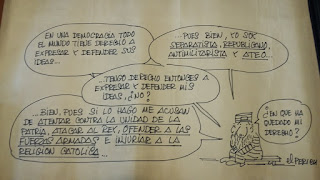 EN UNA DEMOCRACIA TODO
EL MUNDO TIENE DERECHO A
EXPRESAR Y DEFENDER SUS
IDEAS...
...PUES BIEN, YO SOY
SEPARATISTA, REPUBLICANO,
ANTIMILITARISTA Y
ATEO...
...TENGO DERECHO ENTONCES A
EXPRESAR Y DEFENDER MIS
IDEAS, ¿NO?
...BIEN, PUES SI LO HAGO ME ACUSAN
DE ATENTAR CONTRA LA UNIDAD DE LA
PATRIA, ATACAR AL REY, OFENDER A LAS
FUERZAS ARMADAS E INJURIAR A LA
RELIGIÓN CATÓLICA...
¿EN QUE HA
QUEDADO MI
DERECHO?